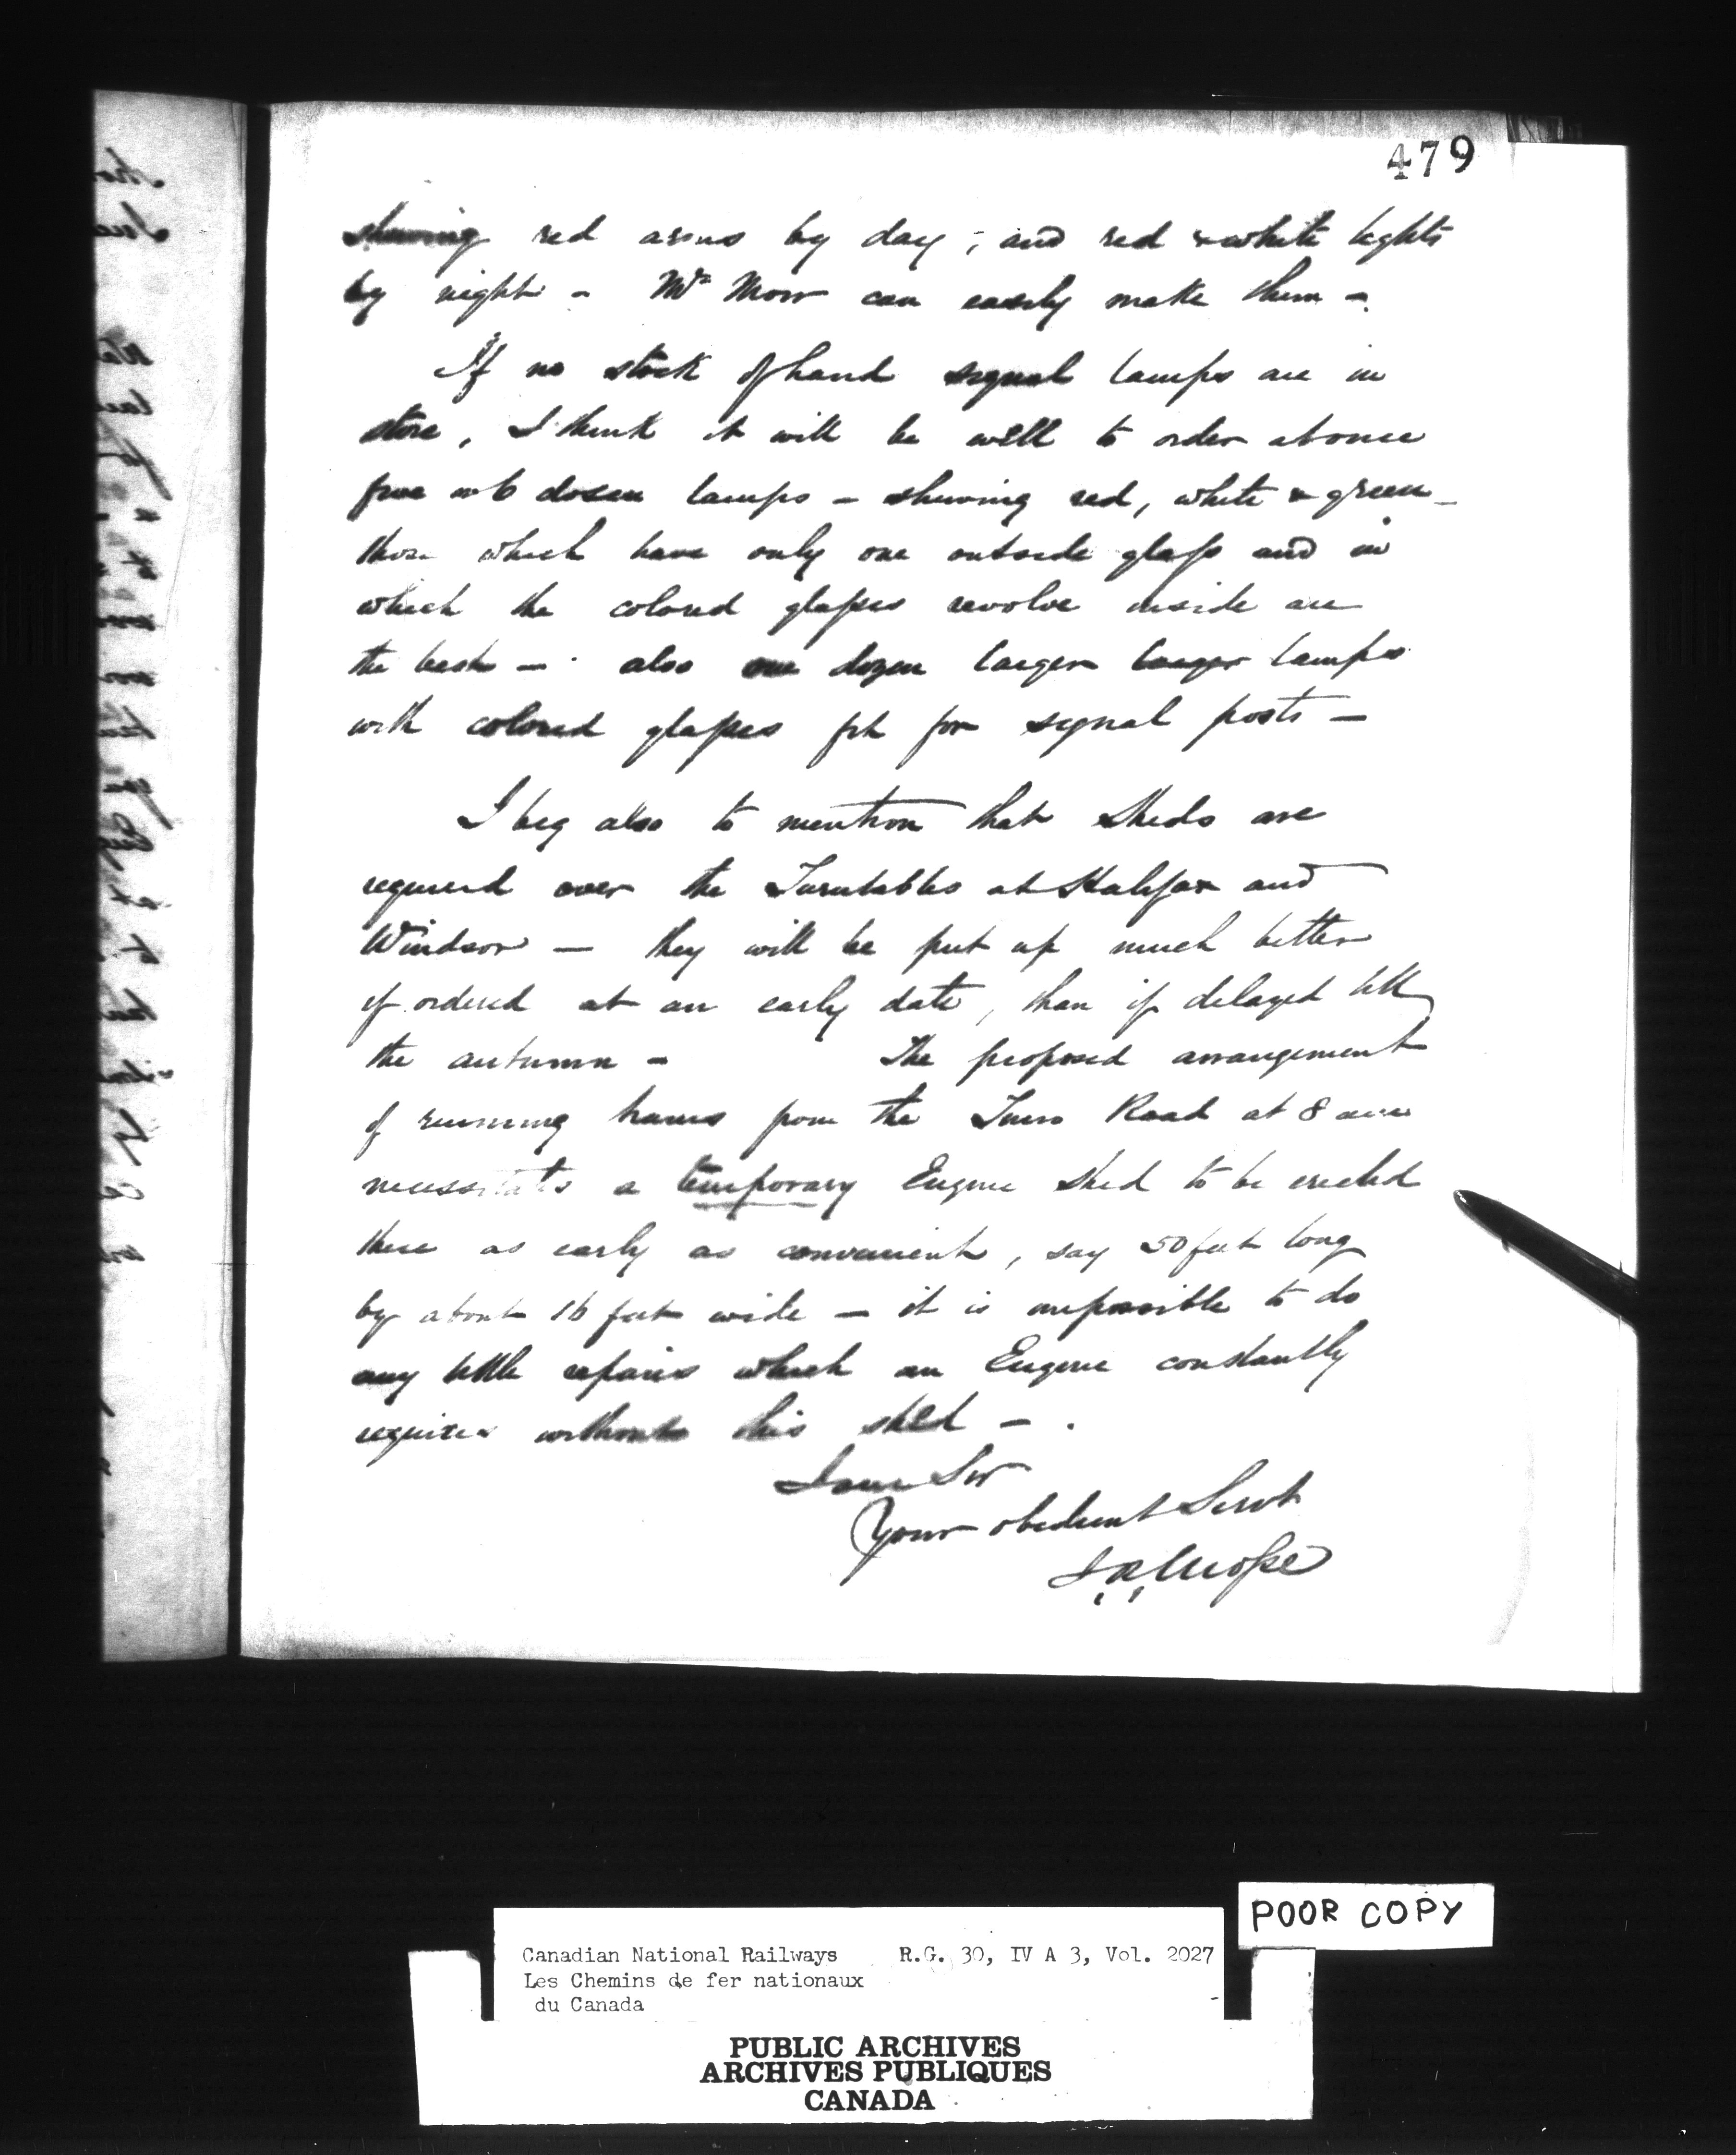 479
shewing red arms by day; and red & white lights
by night - Mr Morr can easily make them -
If no stock of hand signal lamps are in
store, I think it will be well to order at once
five or 6 dozen lamps - shewing red, white & green -
those which have only one outside glass and in
which the colored glasses revolve inside are
the best - also one dozen larger lamps
with colored glasses fit for signal posts -
I beg also to mention that Sheds are
required over the Turntables at Halifax and
Windsor - they will be put up much better
if ordered at an early date, than if delayed till
the autumn - The proposed arrangement
of running trains from the Truro Road at 8 am
necessitates a temporary Engine shed to be erected
there as early as convenient, say 50 feet long
by about 16 feet wide - it is impossible to do
any little repairs which an Engine constantly
requires without this shed -
I am Sir
Your obedient Servt
POOR COPY
Canadian National Railways R.G. 30, IV A 3, Vol. 2027
Les Chemins de fer nationaux
du Canada
PUBLIC ARCHIVES
ARCHIVES PUBLIQUES
CANADA